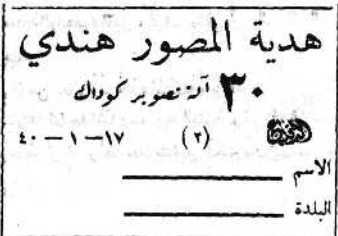 هدية المصور هندي
٣٠ آلة تصوير كوداك
(٢) ١٧-١-٤٠
الاسم
البلدة